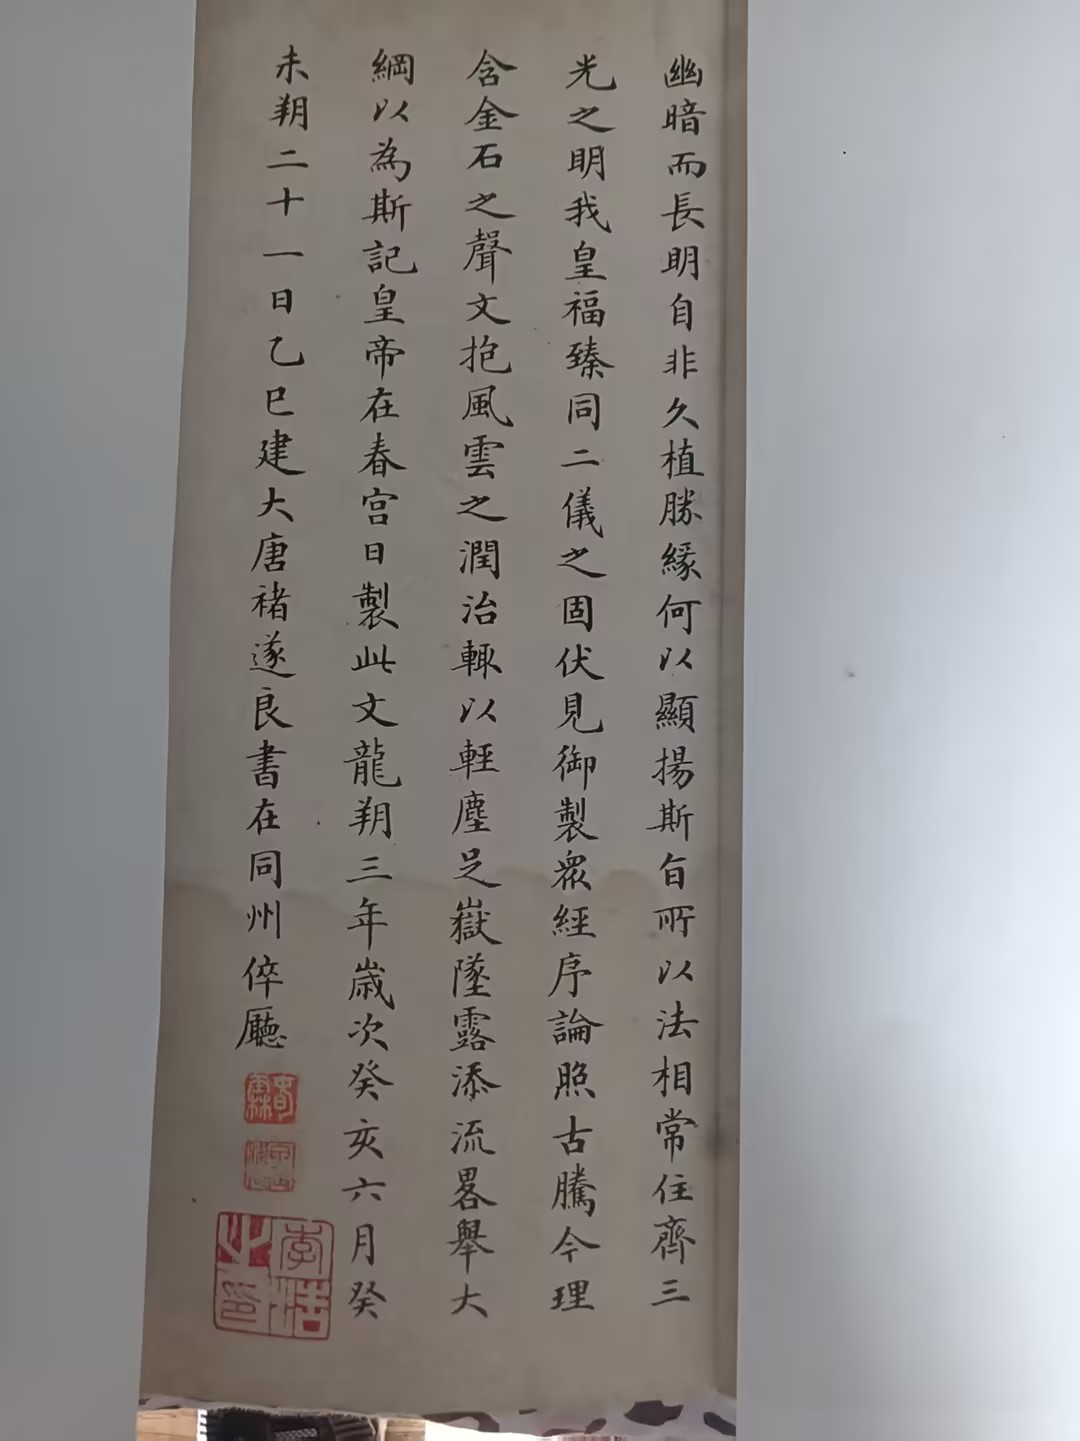 幽暗而長明自非久植勝緣何以顯揚斯旨所以法相常住齊三
光之明我皇福臻同二儀之固伏見御製眾經序論照古騰今理
含金石之聲文抱風雲之潤治輒以輕塵足嶽墜露添流畧舉大
綱以為斯記皇帝在春宮日製此文龍朔三年歲次癸亥六月癸
未朔二十一日乙巳建大唐褚遂良書在同州倅廳
李浩之印